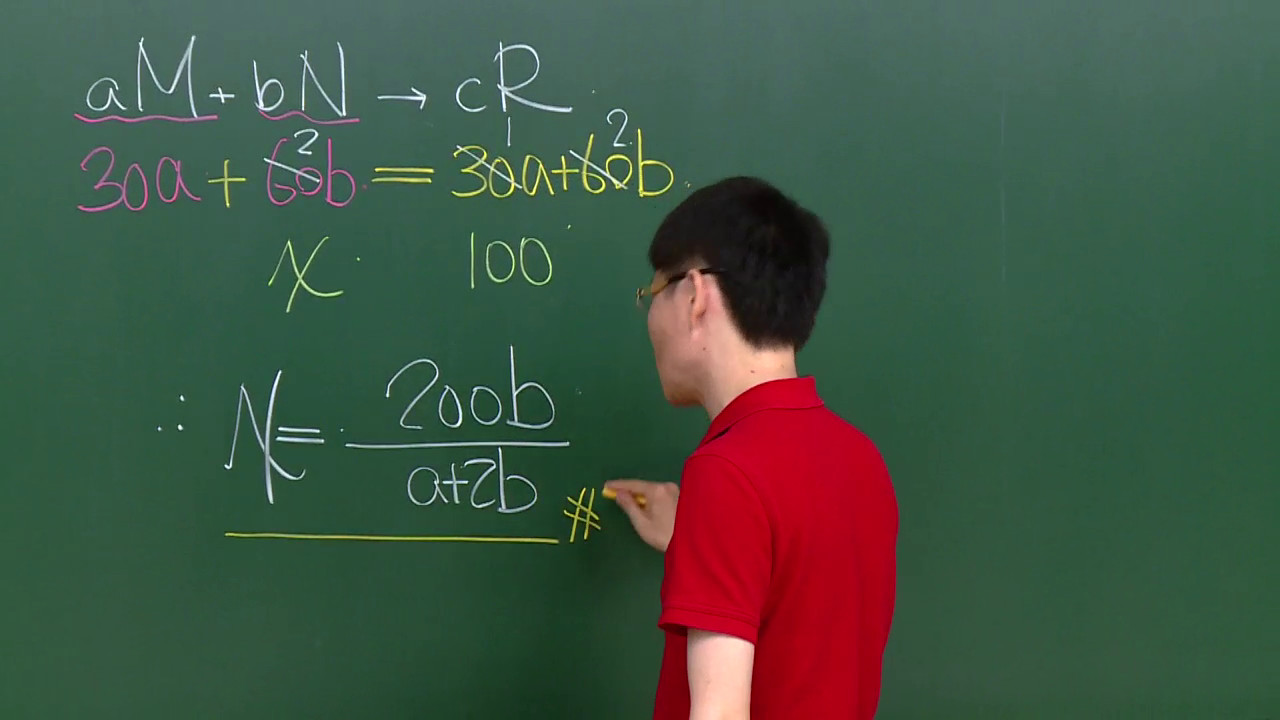 aM + bN → cR
30a + 60b = 30a+60b
2 1 2
x 100
∴ x = 200b / a+2b #